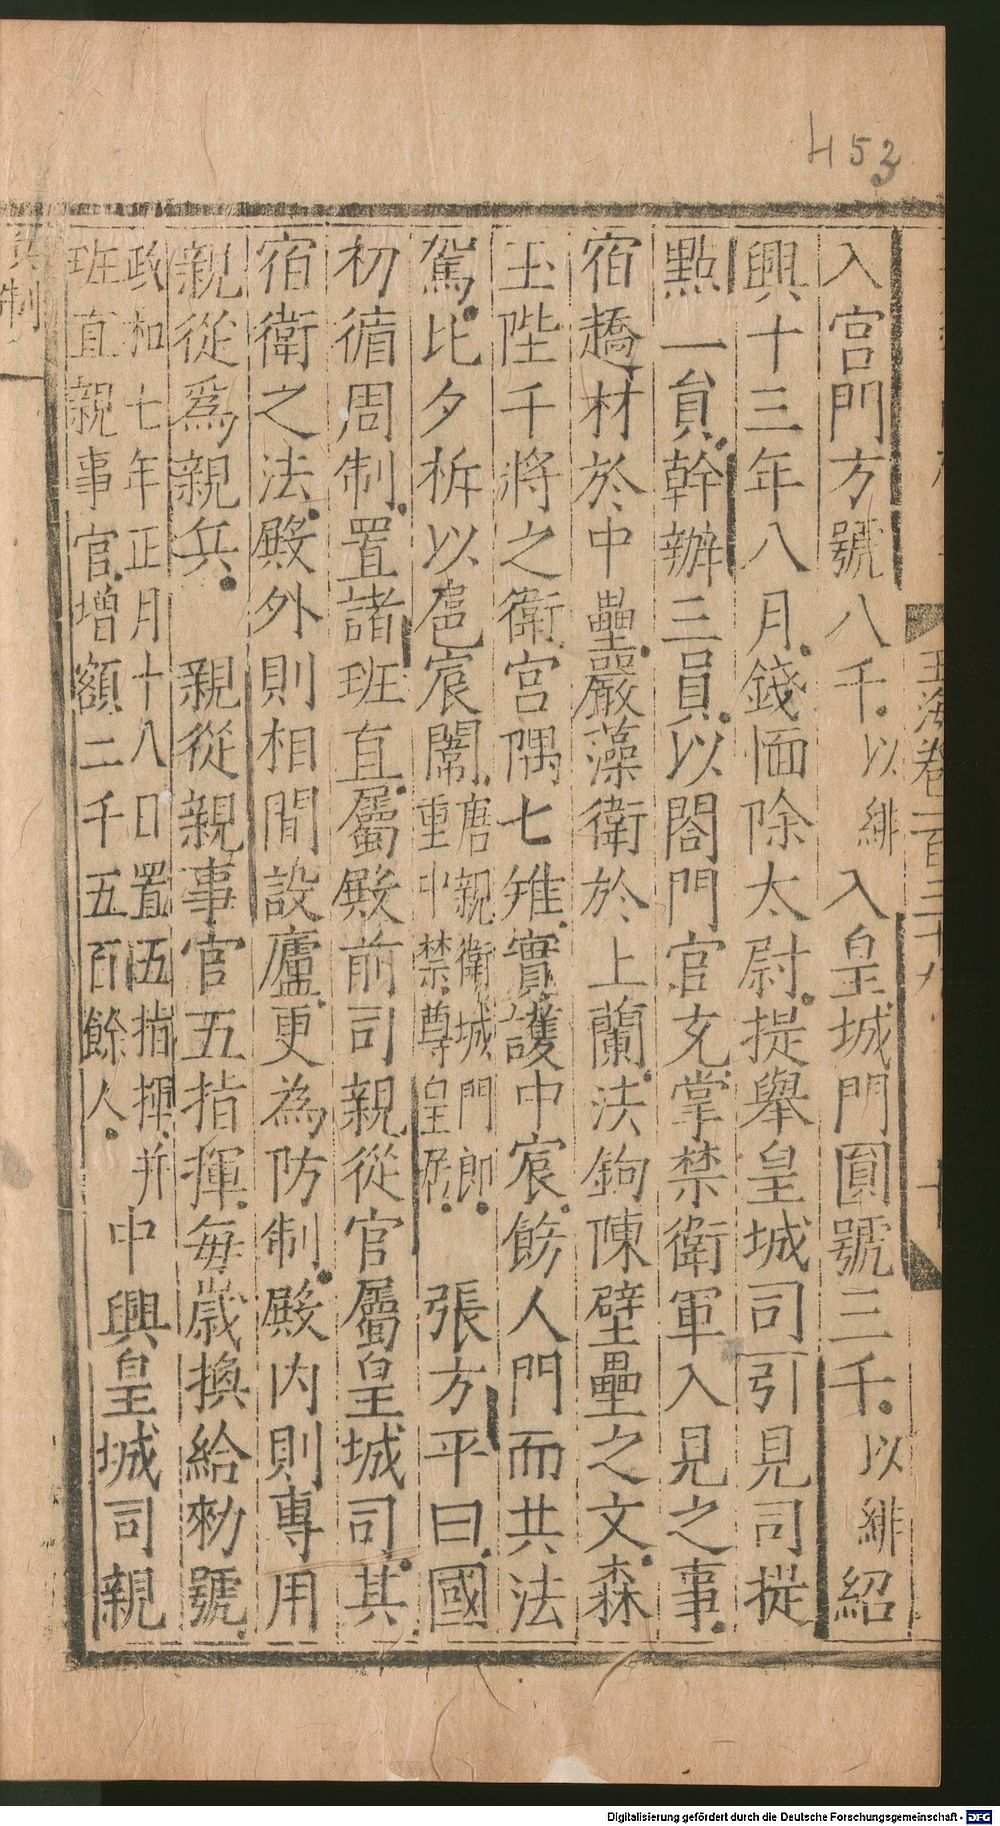 453
入宮門方號八千以緋入皇城門圓號三千以緋紹
興十三年八月錢愐除太尉提舉皇城司引見司提
點一員幹辦三員以閤門官充掌禁衛軍入見之事
宿趫材於中壘嚴藻衛於上蘭法鉤陳壁壘之文森
玉陛千將之衛宮隅七雉實護中宸飭人門而共法
駕比夕柝以扈宸闈唐親衛城門郎重中禁尊皇居張方平曰國
初循周制置諸班直屬殿前司親從官屬皇城司其
宿衛之法殿外則相間設廬更為防制殿内則專用
親從爲親兵親從親事官五指揮每歲換給勑號
政和七年正月十八日置五指揮并班直親事官增額二千五百餘人中興皇城司親
玉海卷一百三十九
兵制
Digitalisierung gefördert durch die Deutsche Forschungsgemeinschaft - DFG